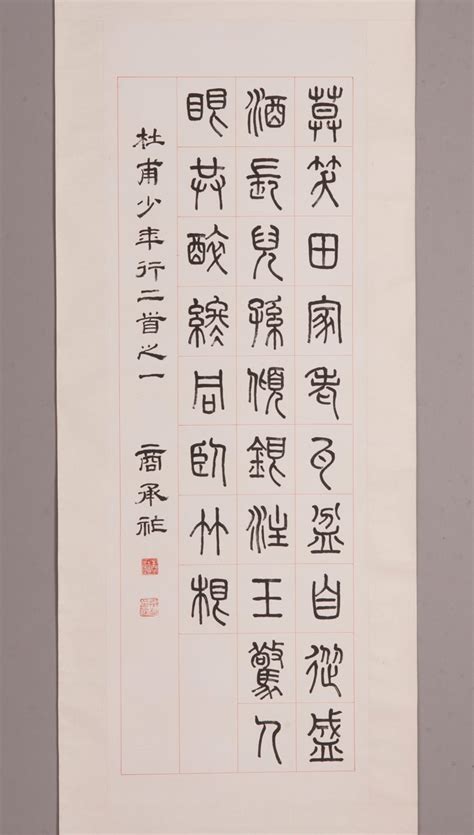 莫笑田家老瓦盆自從盛
酒長兒孫傾銀注玉驚人
眼共醉終同臥竹根
杜甫少年行二首之一 商承祚